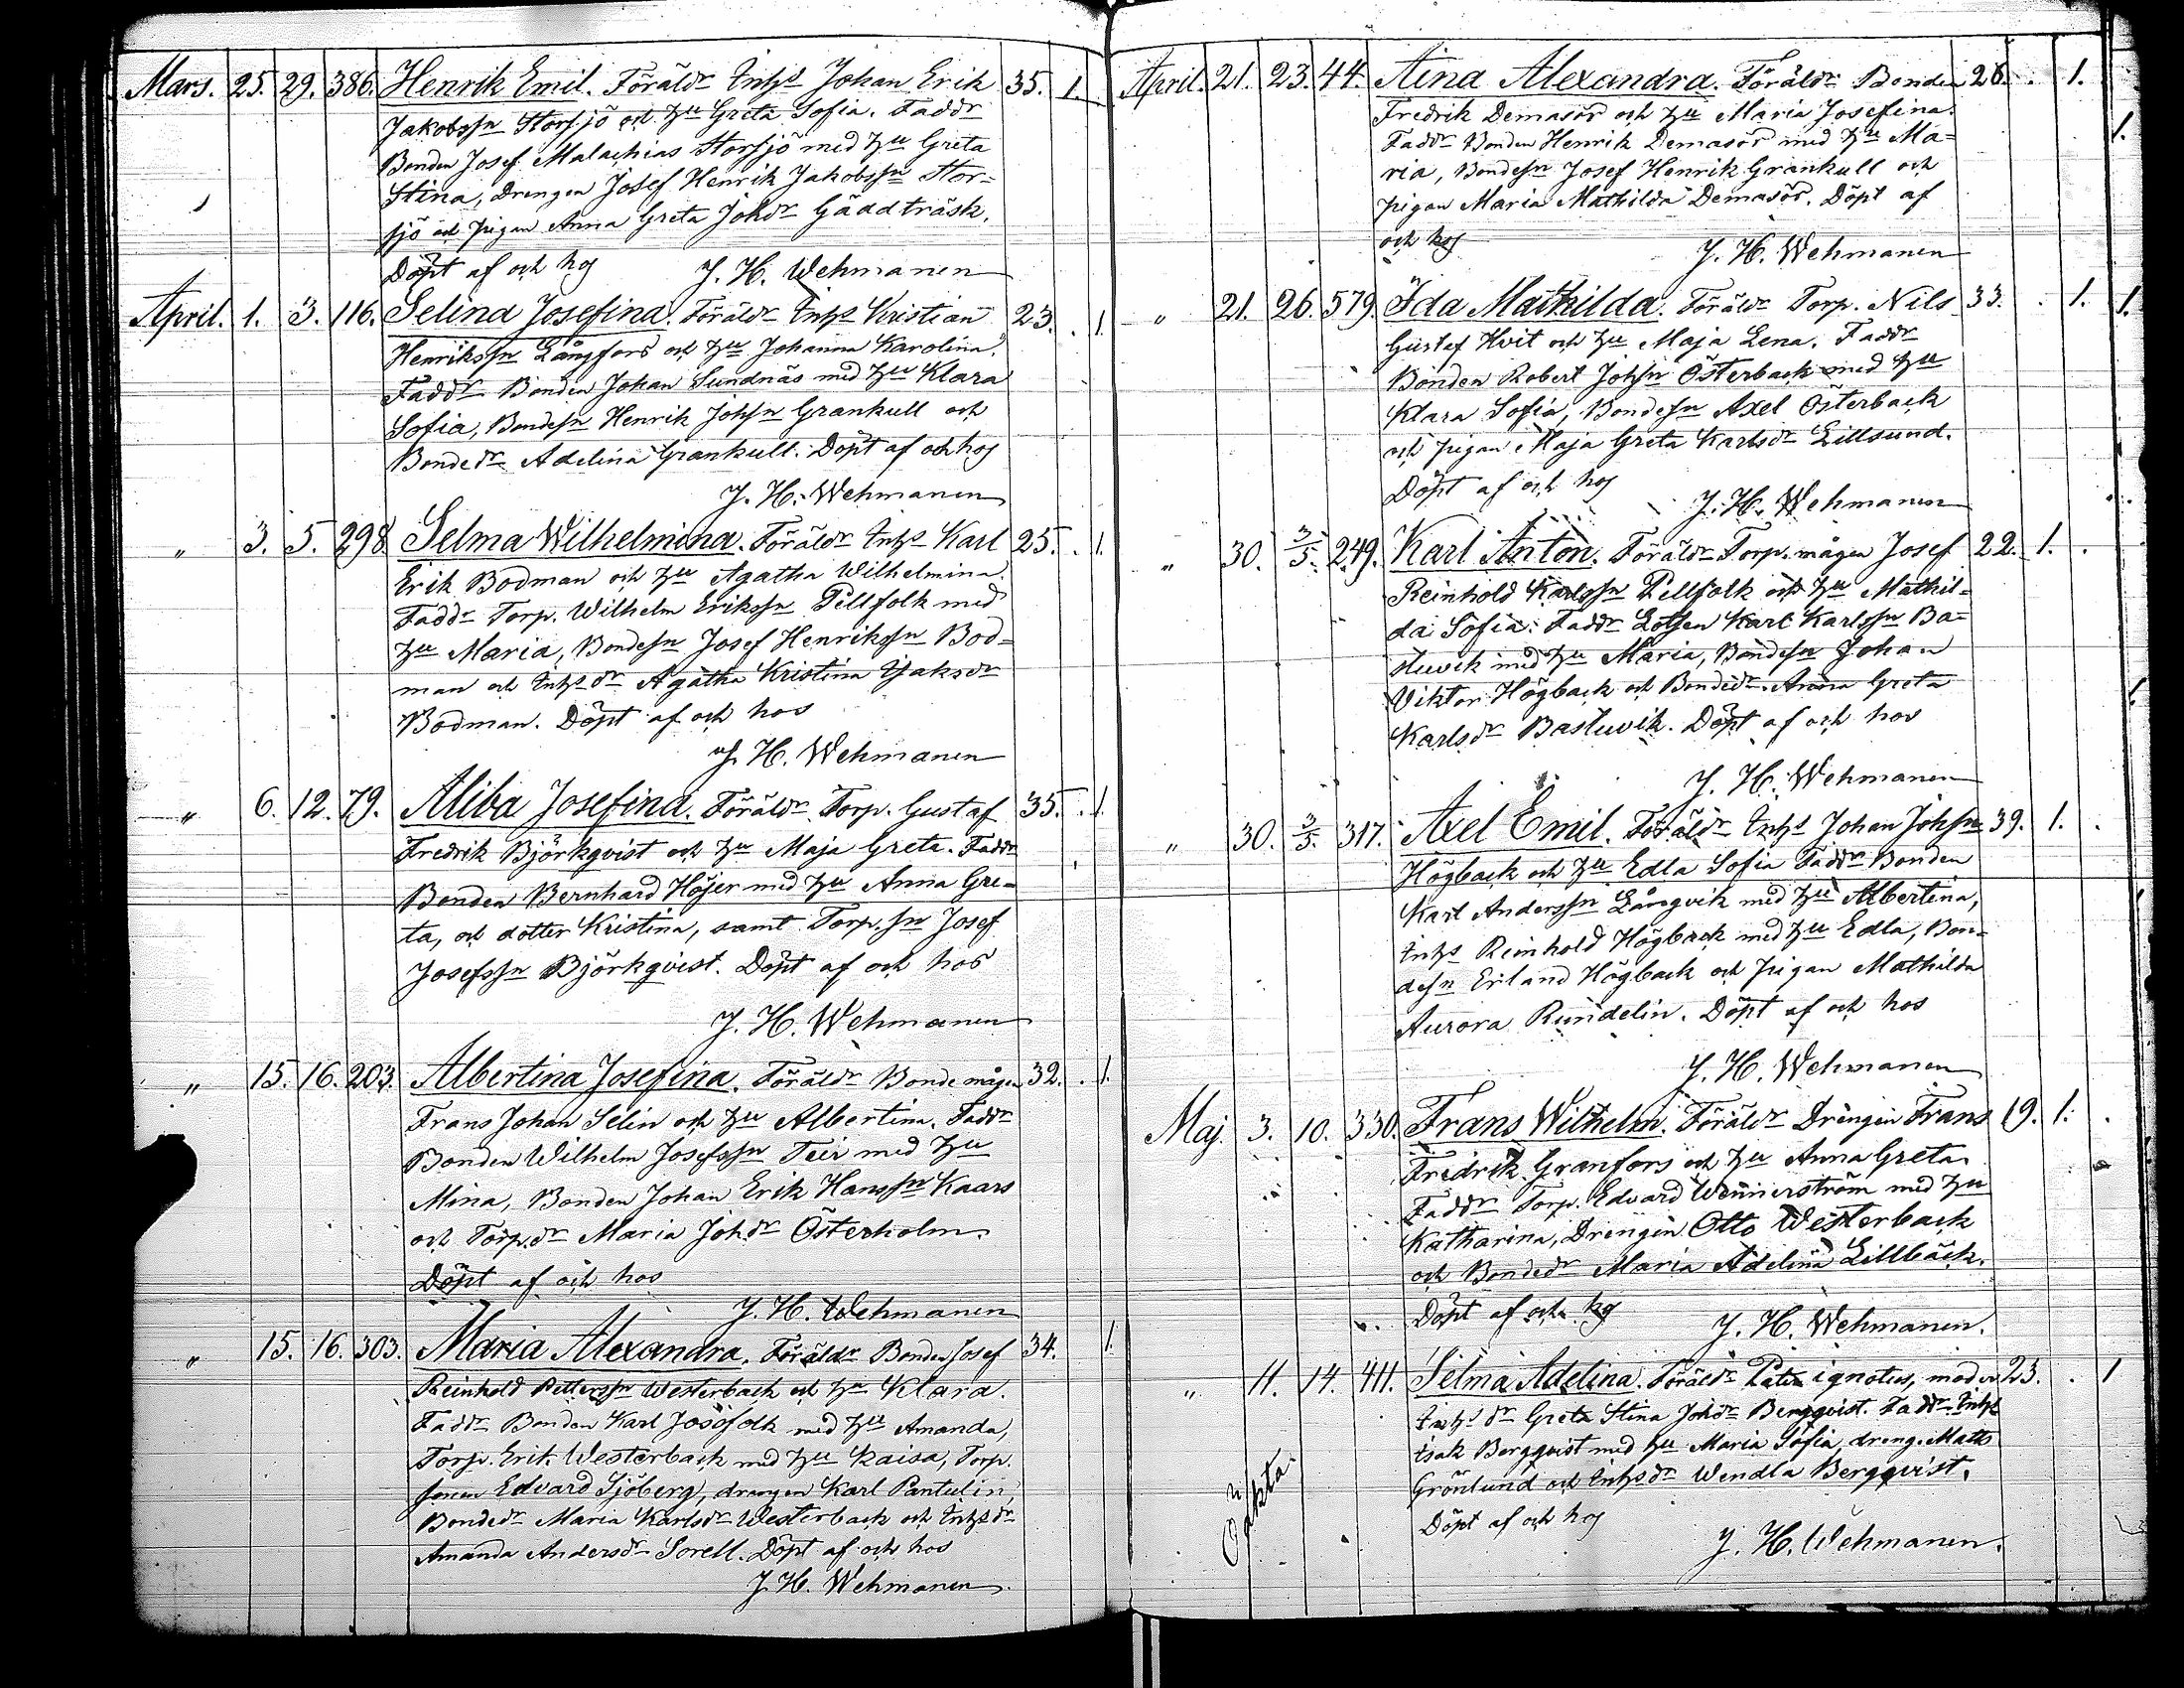 Mars. 25. 29. 386. Henrik Emil. Föräldr Inhs Johan Erik 35. 1.
Jakobssn Storsjö och hu Greta Sofia. Faddr
Bonden Josef Malachias Storsjö med hu Greta
Stina, Drengen Josef Henrik Jakobssn Stor=
sjö och pigan Anna Greta Johdr Gäddträsk.
Döpt af och hos J. H. Wehmanen
April. 1. 3. 116. Selina Josefina. Föräldr Inhs Kristian 23. . 1.
Henrikssn Långfors och hu Johanna Karolina.
Faddr Bonden Johan Sundnäs med hu Klara
Sofia, Bondesn Henrik Johsn Grankull och
Bondedr Adelina Grankull. Döpt af och hos
J. H. Wehmanen
" 3. 5. 298 Selma Wilhelmina. Föräldr Inhs Karl 25. . 1.
Erik Bodman och hu Agatha Wilhelmina.
Faddr Torp. Wilhelm Erikssn Pellfolk med
hu Maria, Bondesn Josef Henrikssn Bod=
man och Inhsdr Agatha Kristina Isaksdr
Bodman. Döpt af och hos
J. H. Wehmanen
" 6. 12. 79. Aliba Josefina. Föräldr Torp. Gustaf 35. . 1.
Fredrik Björkqvist och hu Maja Greta. Faddr
Bonden Bernhard Höjer med hu Anna Gre=
ta, och dotter Kristina, samt Torp.sn Josef
Josefssn Björkqvist. Döpt af och hos
J. H. Wehmanen
" 15. 16. 203. Albertina Josefina. Föräldr Bondemågen 32. . 1.
Frans Johan Selin och hu Albertina. Faddr
Bonden Wilhelm Josefssn Teir med hu
Mina, Bonden Johan Erik Hanssn Kaars
och Torp.dr Maria Johdr Österholm.
Döpt af och hos
J. H. Wehmanen
" 15. 16. 303. Maria Alexandra. Föräldr Bonden Josef 34. 1.
Reinhold Petterssn Westerback och hu Klara.
Faddr Bonden Karl Josöfolk med hu Amanda,
Torp. Erik Westerback med hu Kaisa, Torp.
sonen Edvard Sjöberg, drengen Karl Pantulin,
Bondedr Maria Karlsdr Westerback och Inhsdr
Amanda Andersdr Sorell. Döpt af och hos
J. H. Wehmanen.
April. 21. 23. 44. Aina Alexandra. Föräldr Bonden 26. . 1.
Fredrik Demasör och hu Maria Josefina.
Faddr Bonden Henrik Demasör med hu Ma= 1.
ria, Bondesn Josef Henrik Grankull och
pigan Maria Mathilda Demasör. Döpt af
och hos J. H. Wehmanen
" 21. 26. 579. Ida Mathilda. Föräldr Torp. Nils 33. . 1. 1.
Gustaf Hvit och hu Maja Lena. Faddr
Bonden Robert Johsn Österback med hu
Klara Sofia, Bondesn Axel Österback
och pigan Maja Greta Karlsdr Lillsund.
Döpt af och hos
J. H. Wehmanen
" 30. 3/5. 249. Karl Anton. Föräldr Torp.mågen Josef 22. 1. .
Reinhold Karlssn Pellfolk och hu Mathil=
da Sofia. Faddr Lotsen Karl Karlssn Ba=
stuvik med hu Maria, Bondesn Johan
Viktor Högback och Bondedr Anna Greta
Karlsdr Bastuvik. Döpt af och hos
J. H. Wehmanen
" 30. 3/5. 317. Axel Emil. Föräldr Inhs Johan Johsn 39. 1. .
Högback och hu Edla Sofia Faddr Bonden
Karl Anderssn Långvik med hu Albertina,
Inhs Reinhold Högback med hu Edla, Bon=
desn Erland Högback och pigan Mathilda
Aurora Rundelin. Döpt af och hos
J. H. Wehmanen
Maj. 3. 10. 330. Frans Wilhelm. Föräldr Drengen Frans 19. 1. .
Fredrik Granfors och hu Anna Greta.
Faddr Torp. Edvard Wennerström med hu
Katharina, Drengen Otto Westerback
och Bondedr Maria Adelina Lillbäck.
Döpt af och hos J. H. Wehmanen.
" 11. 14. 411. Selma Adelina. Föräldr Pater ignotus, moder 23. . 1
Inhsdr Greta Stina Johdr Bergqvist. Faddr Inhs
Isak Bergqvist med hu Maria Sofia, dreng. Matts
Grönlund och Inhsdr Wendla Bergqvist.
Oäkta.
Döpt af och hos
J. H. Wehmanen.